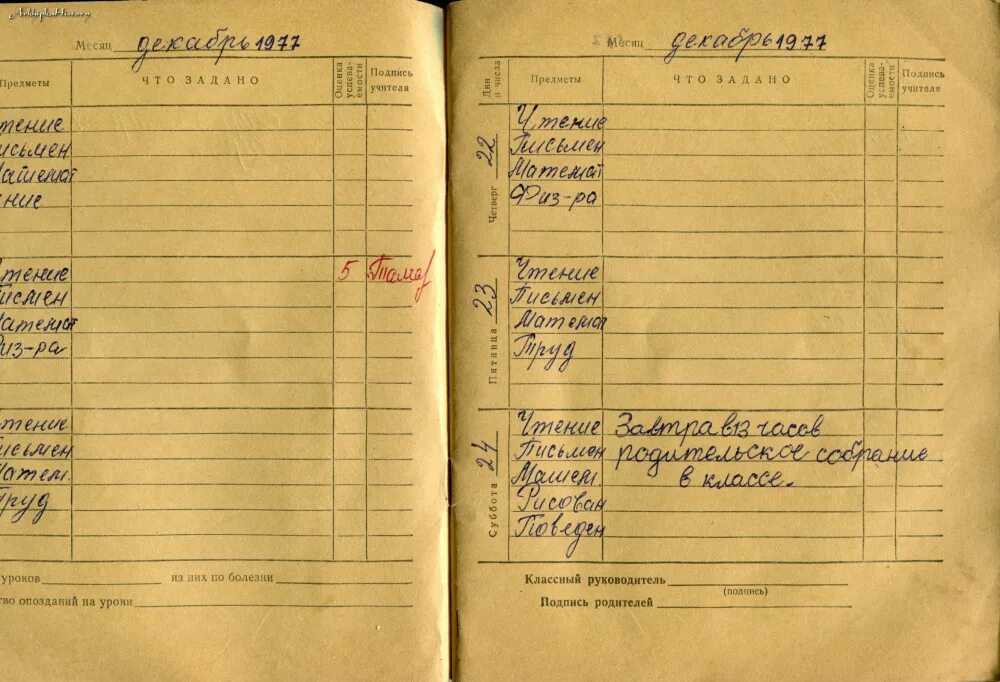 Месяц декабрь 1977
Предметы ЧТО ЗАДАНО Оценка успеваемости Подпись учителя
тение
исьмен
ние
тение 5 Тамар
исмен
атемат
из-ра
тение
исьмен
атем.
руд
уроков из них по болезни
во опозданий на уроки
Месяц декабрь 1977
Дни и числа Предметы ЧТО ЗАДАНО Оценка успеваемости Подпись учителя
Четверг 22
Чтение
Письмен
Математ
Физ-ра
Пятница 23
Чтение
Письмен
Математ
Труд
Суббота 24
Чтение Завтра в 13 часов
Письмен родительское собрание
Матем. в классе.
Рисован
Поведен
Классный руководитель
(подпись)
Подпись родителей